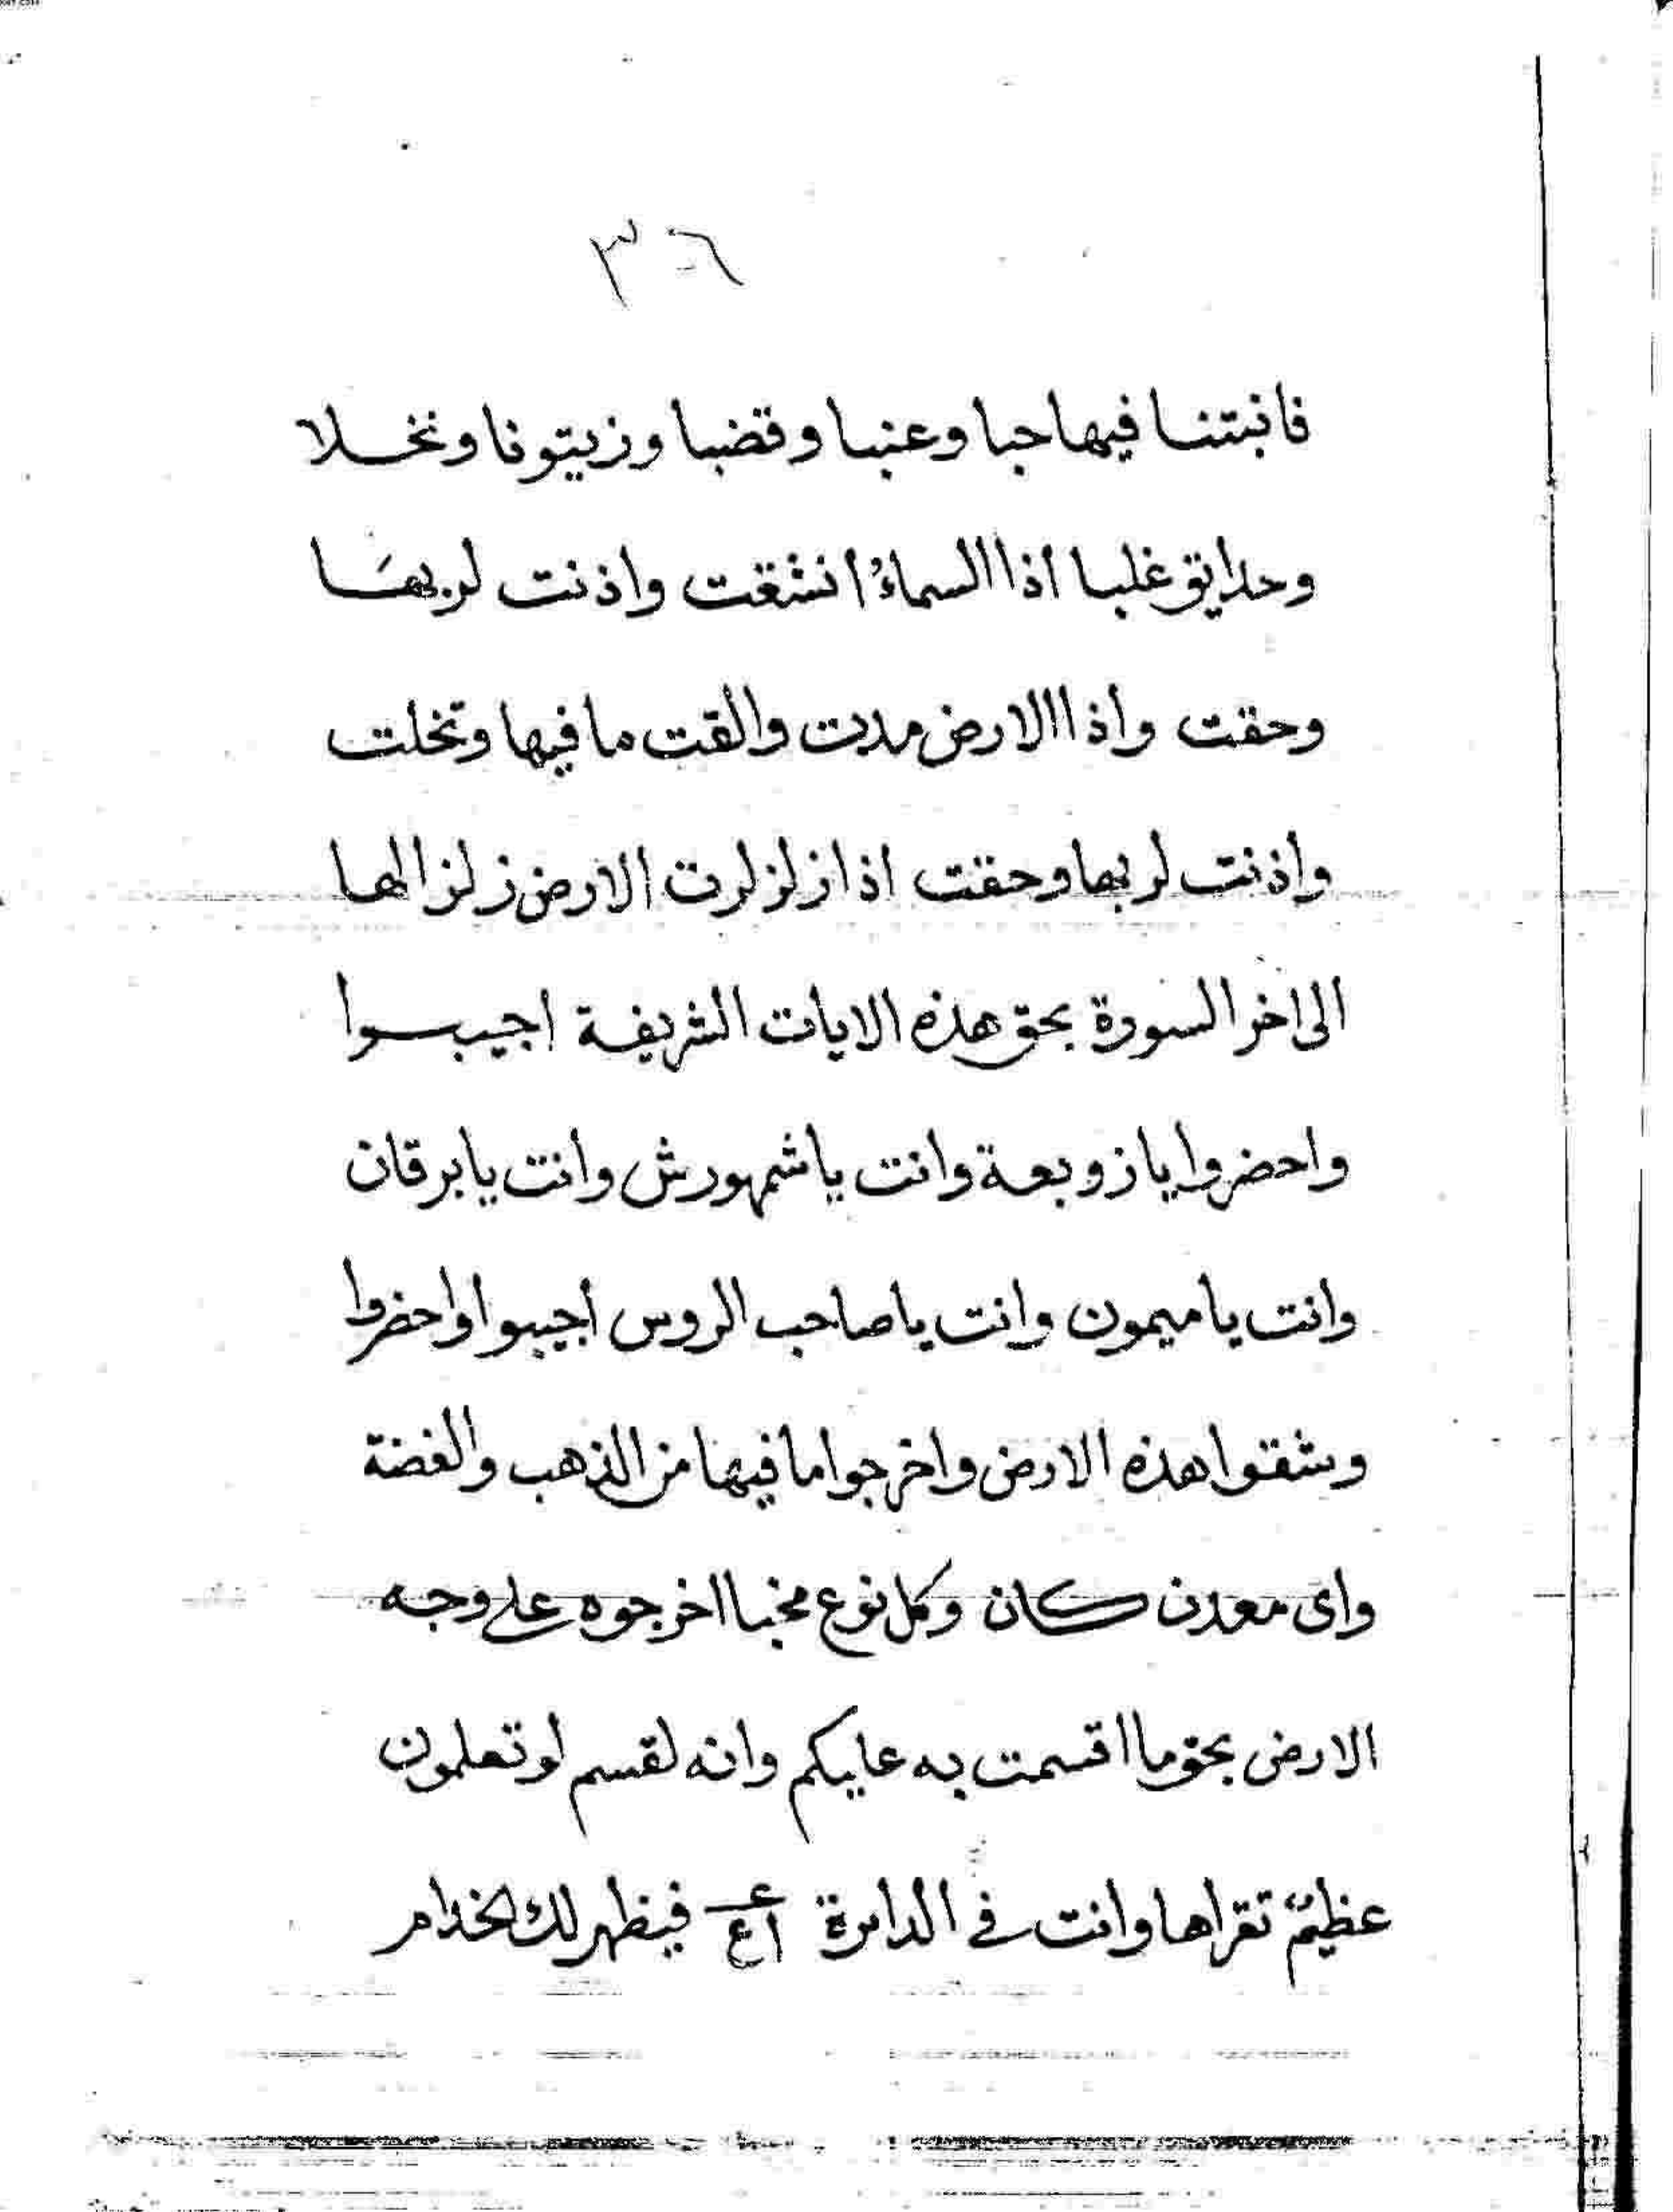 ٣٦
فانبتنا فيها حبا وعنبا وقضبا وزيتونا ونخلا
وحدايق غلبا اذا السماءُ انشقت واذنت لربهَا
وحقت واذا الارض مدت والقت ما فيها وتخلت
واذنت لربها وحقت اذا زلزلرت الارض زلزالها
الى اخر السورة بحق هذه الايات الشريفة اجيبوا
واحضروا يا زوبعة وانت يا شمهورش وانت يا برقان
وانت يا ميمون وانت يا صاحب الروس أجيبوا واحضروا
وشقوا هذه الارض واخرجوا ما فيها من الذهب والفضة
واى معدن كان وكل نوع مخبا اخرجوه على وجه
الارض بحق ما اقسمت به عليكم وانه لقسم لو تعلمون
عظيمٌ تقراها وانت فى الدايرة فيظهر لك الخدام